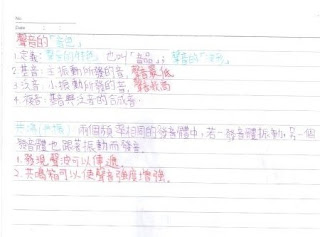 No.
Date
聲音的「音色」
1.定義:聲音的特色,也叫「音品」,聲音的「波形」
2.基音:主振動所發的音,聲音最低
3.泛音:小振動所發的音,聲音較高
4.複音:基音與泛音的合成音
共鳴(共振) 兩個頻率相同的發音體中,若一發音體振動,另一個
發音體也跟著振動而發音。
1.發現聲波可以傳遞。
2.共鳴箱可以使聲音強度增強。